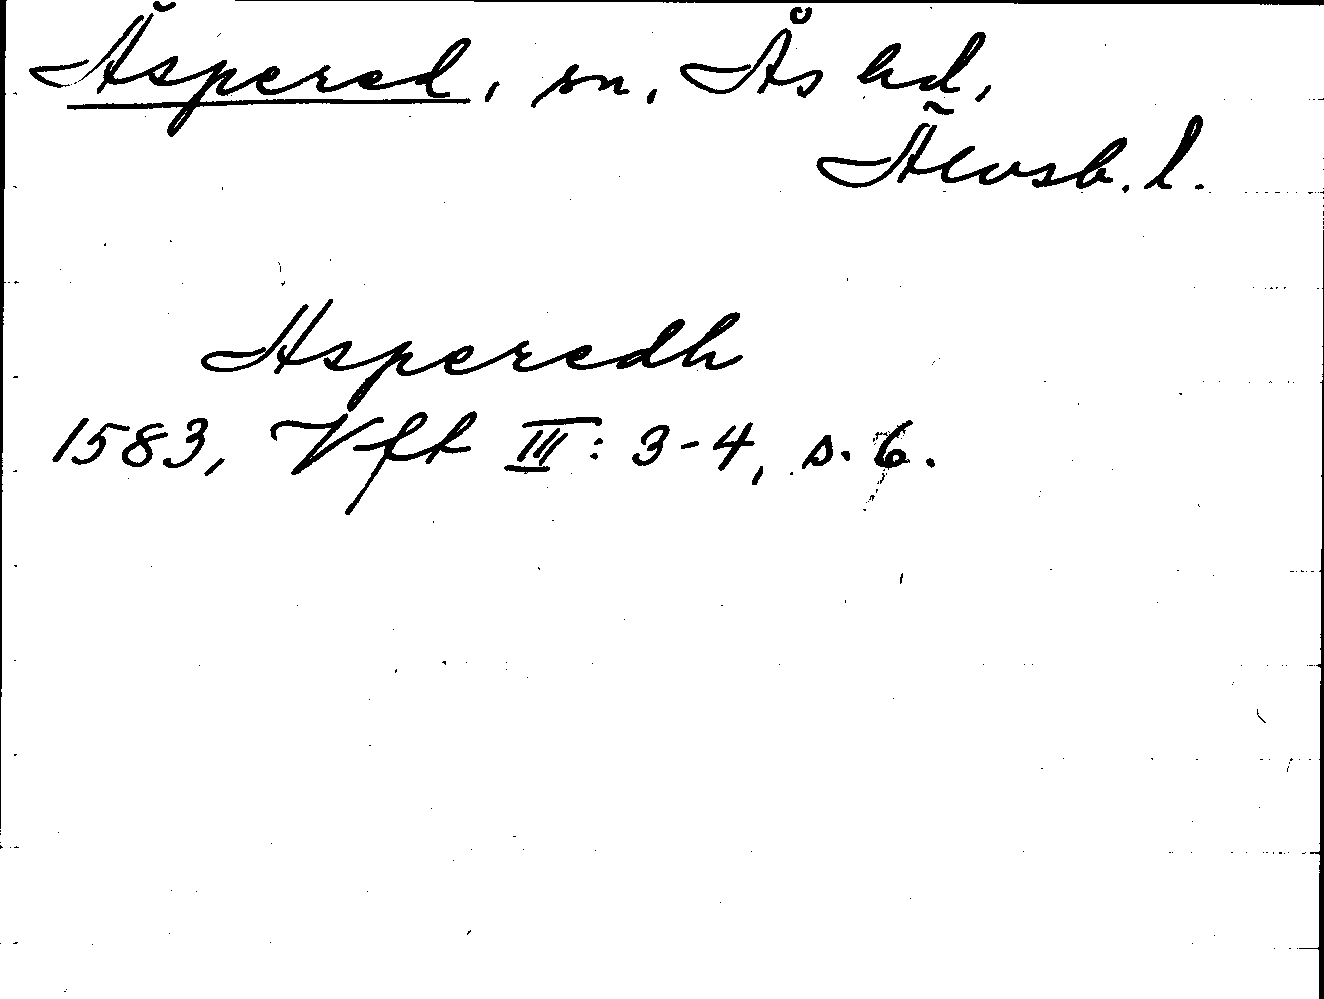 Äspered, sn, Ås hd,
Älvsb. l.
Asperedh
1583, Vft III: 3-4, s. 6.